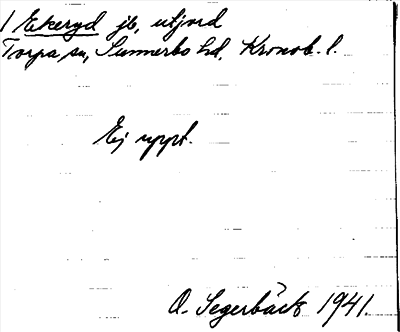 1 Ekeryd jb, utjord
Torpa sn, Sunnerbo hd, Kronob. l.
Ej uppt.
O. Segerbäck 1941.